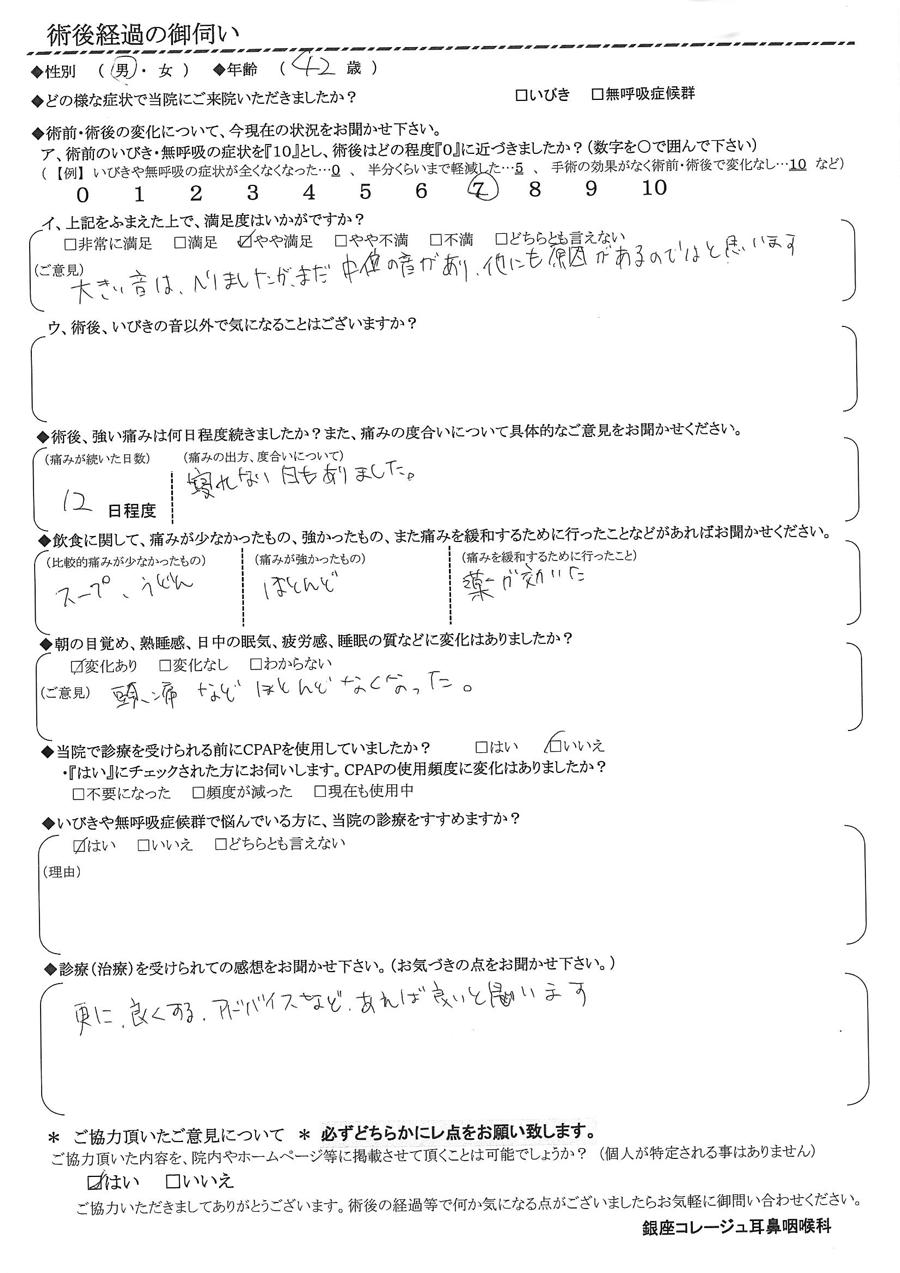 術後経過の御伺い
◆性別 ( 男 ・ 女 ) ◆年齢 ( 42 歳 )
◆どの様な症状で当院にご来院いただきましたか? □いびき □無呼吸症候群
◆術前・術後の変化について、今現在の状況をお聞かせ下さい。
ア、術前のいびき・無呼吸の症状を『10』とし、術後はどの程度『0』に近づきましたか?(数字を○で囲んで下さい)
(【例】いびきや無呼吸の症状が全くなくなった…0 、 半分くらいまで軽減した…5 、 手術の効果がなく術前・術後で変化なし…10 など)
0 1 2 3 4 5 6 7 8 9 10
イ、上記をふまえた上で、満足度はいかがですか?
□非常に満足 □満足 ☑やや満足 □やや不満 □不満 □どちらとも言えない
(ご意見) 大きい音は、へりましたが、まだ 中位の音があり、他にも原因があるのではと思います
ウ、術後、いびきの音以外で気になることはございますか?
◆術後、強い痛みは何日程度続きましたか?また、痛みの度合いについて具体的なご意見をお聞かせください。
(痛みが続いた日数) (痛みの出方、度合いについて)
寝れない日もありました。
12 日程度
◆飲食に関して、痛みが少なかったもの、強かったもの、また痛みを緩和するために行ったことなどがあればお聞かせください。
(比較的痛みが少なかったもの) (痛みが強かったもの) (痛みを緩和するために行ったこと)
スープ、うどん ほとんど 薬が効いた
◆朝の目覚め、熟睡感、日中の眠気、疲労感、睡眠の質などに変化はありましたか?
☑変化あり □変化なし □わからない
(ご意見) 頭痛などほとんどなくなった。
◆当院で診療を受けられる前にCPAPを使用していましたか? □はい ☑いいえ
・『はい』にチェックされた方にお伺いします。CPAPの使用頻度に変化はありましたか?
□不要になった □頻度が減った □現在も使用中
◆いびきや無呼吸症候群で悩んでいる方に、当院の診療をすすめますか?
☑はい □いいえ □どちらとも言えない
(理由)
◆診療(治療)を受けられての感想をお聞かせ下さい。(お気づきの点をお聞かせ下さい。)
更に、良くする、アドバイスなど、あれば良いと思います
* ご協力頂いたご意見について * 必ずどちらかにレ点をお願い致します。
ご協力頂いた内容を、院内やホームページ等に掲載させて頂くことは可能でしょうか? (個人が特定される事はありません)
☑はい □いいえ
ご協力いただきましてありがとうございます。術後の経過等で何か気になる点がございましたらお気軽に御問い合わせください。
銀座コレージュ耳鼻咽喉科